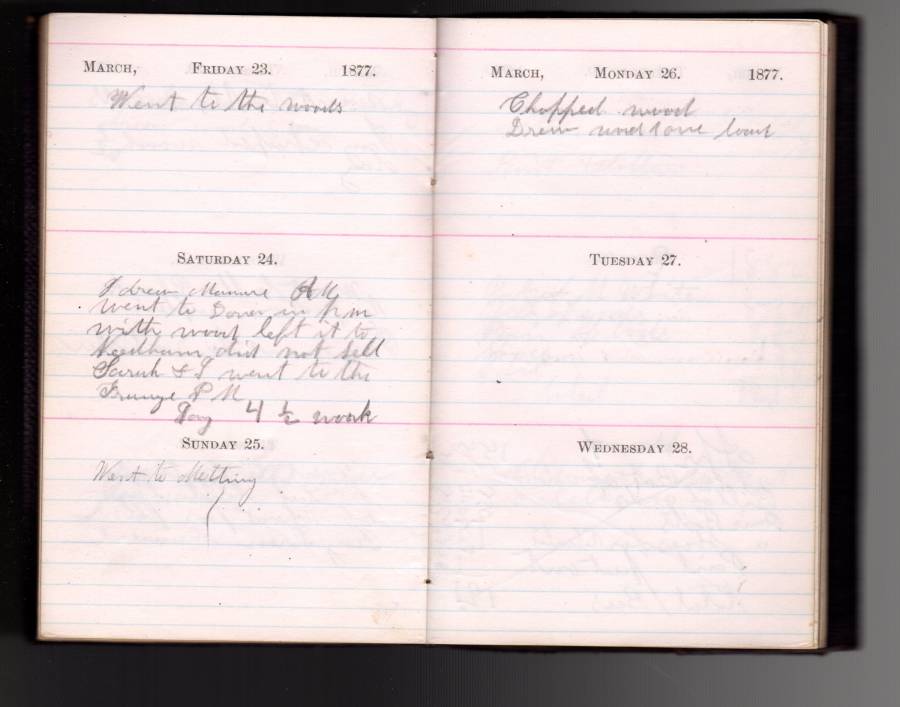 MARCH, FRIDAY 23. 1877.
Went to the woods
SATURDAY 24.
I drew Manure AM
went to Dover in P.m
with wood left it to
Needham did not sell
Sarah & I went to the
Grange P M
Day 4 ½ work
SUNDAY 25.
Went to Metting
MARCH, MONDAY 26. 1877.
Chopped wood
Drew wood one
TUESDAY 27.
WEDNESDAY 28.